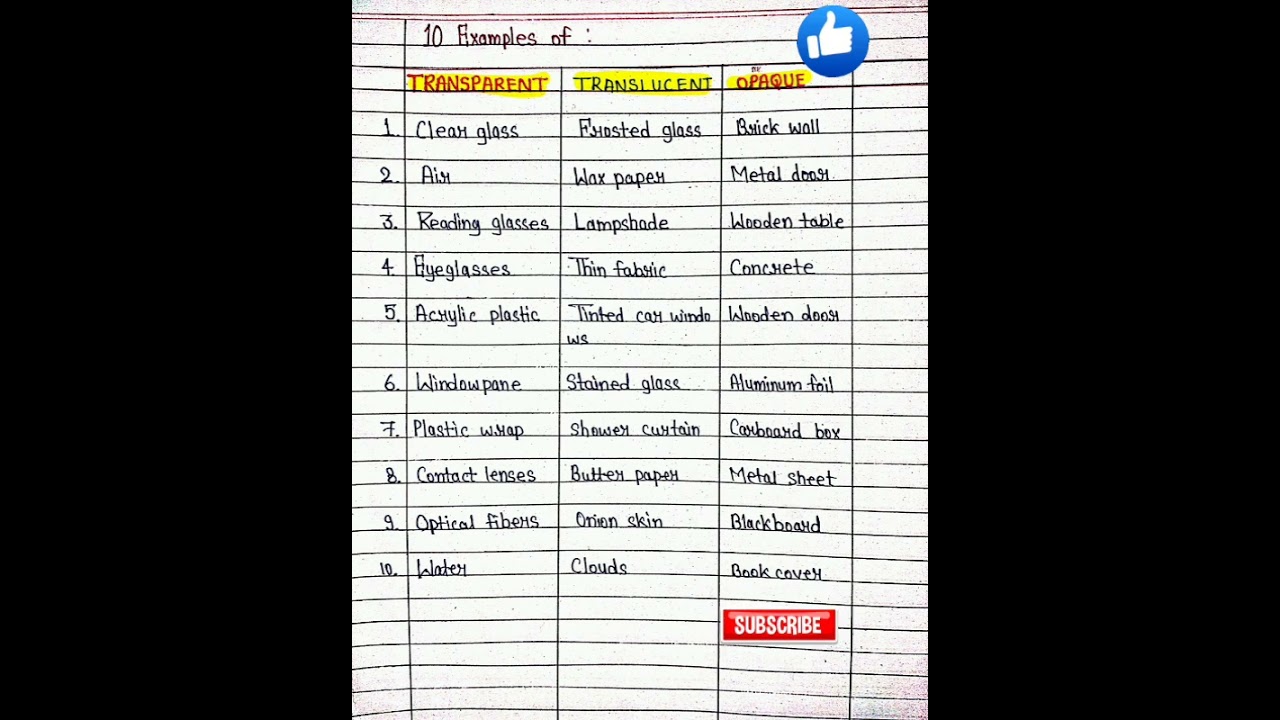 10 Examples of :
TRANSPARENT TRANSLUCENT OPAQUE
1. Clear glass Frosted glass Brick wall
2. Air Wax paper Metal door
3. Reading glasses Lampshade Wooden table
4. Eyeglasses Thin fabric Concrete
5. Acrylic plastic Tinted car windo Wooden door
ws
6. Windowpane Stained glass Aluminum foil
7. Plastic wrap Shower curtain Carboard box
8. Contact lenses Butter paper Metal sheet
9. Optical fibers Onion skin Blackboard
10. Water Clouds Book cover
SUBSCRIBE